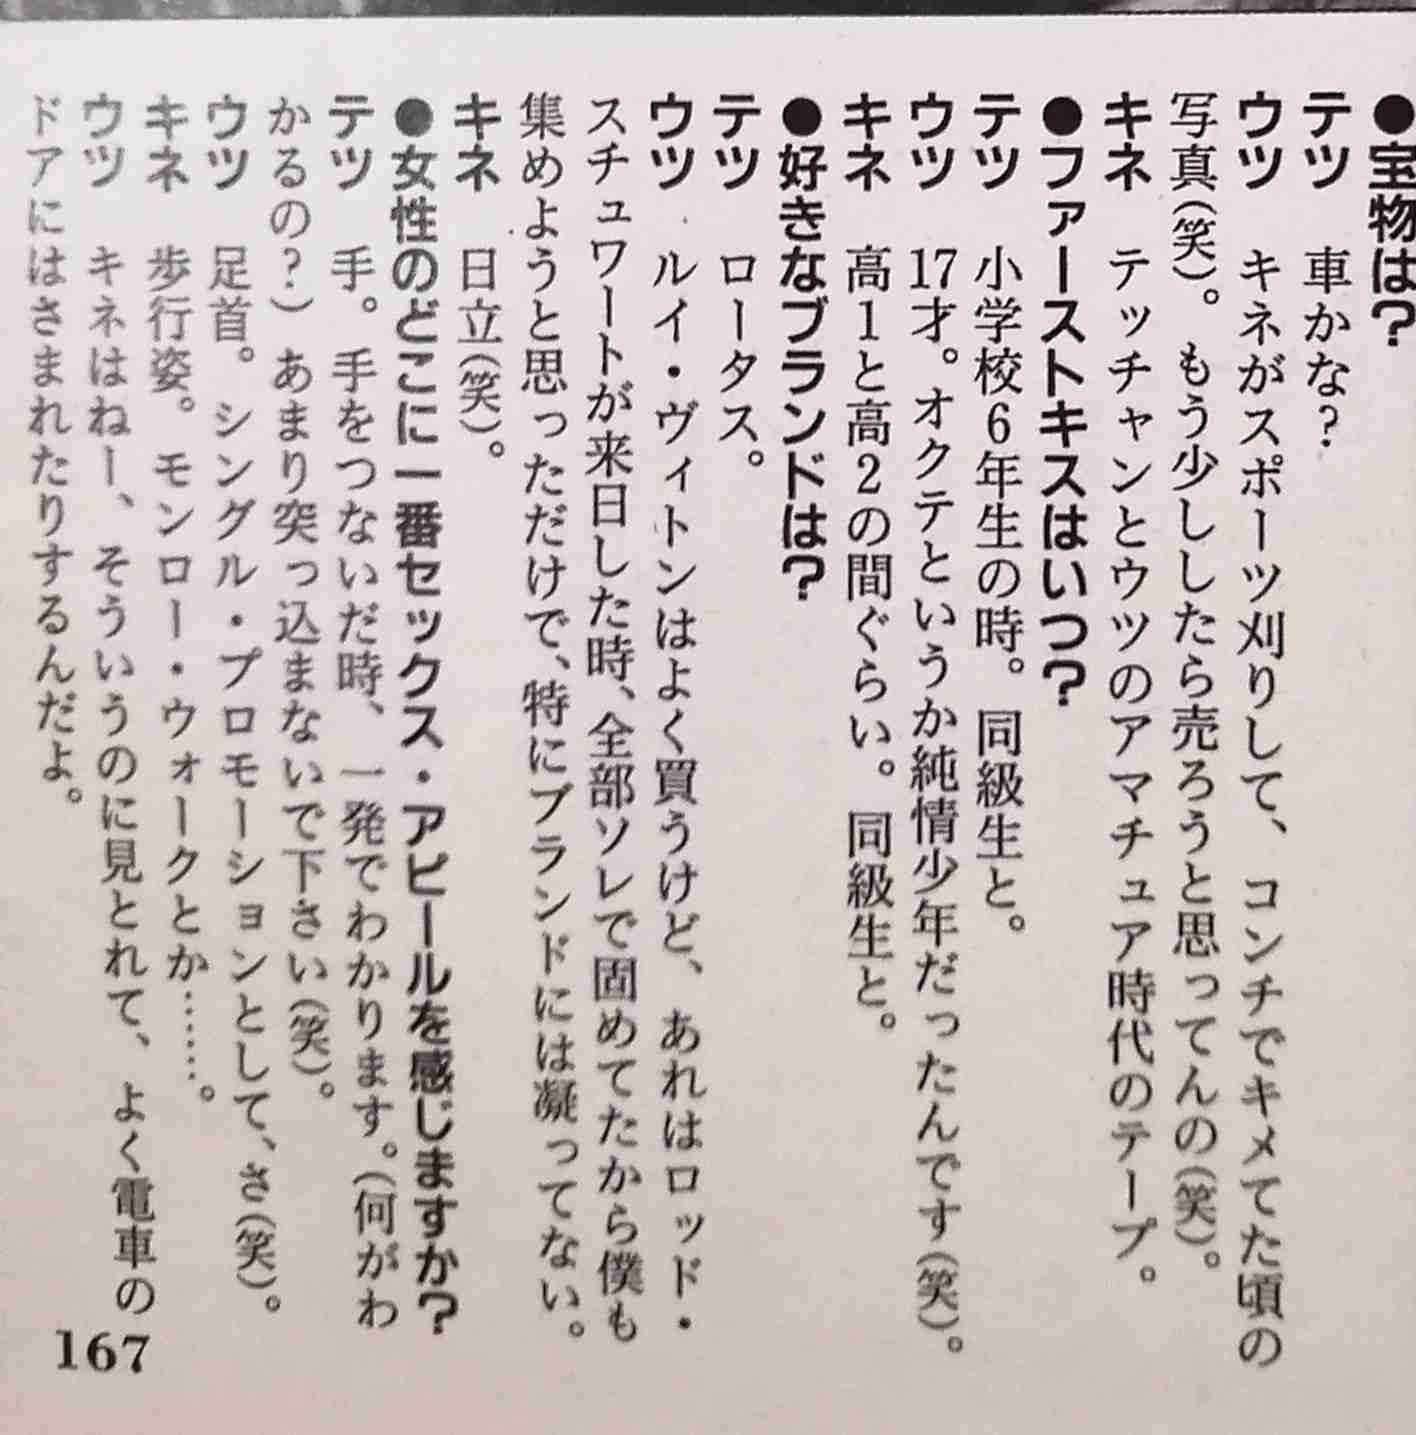 ●宝物は?
テツ　車かな?
ウツ　キネがスポーツ刈りして、コンチでキメてた頃の
写真(笑)。もう少ししたら売ろうと思ってんの(笑)。
キネ　テッチャンとウツのアマチュア時代のテープ。
●ファーストキスはいつ?
テツ　小学校6年生の時。同級生と。
ウツ　17才。オクテというか純情少年だったんです(笑)。
キネ　高1と高2の間ぐらい。同級生と。
●好きなブランドは?
テツ　ロータス。
ウツ　ルイ・ヴィトンはよく買うけど、あれはロッド・
スチュワートが来日した時、全部ソレで固めてたから僕も
集めようと思っただけで、特にブランドには凝ってない。
キネ　日立(笑)。
●女性のどこに一番セックス・アピールを感じますか?
テツ　手。手をつないだ時、一発でわかります。(何がわ
かるの?)あまり突っ込まないで下さい(笑)。
ウツ　足首。シングル・プロモーションとして、さ(笑)。
キネ　歩行姿。モンロー・ウォークとか……。
ウツ　キネはねー、そういうのに見とれて、よく電車の
ドアにはさまれたりするんだよ。
167